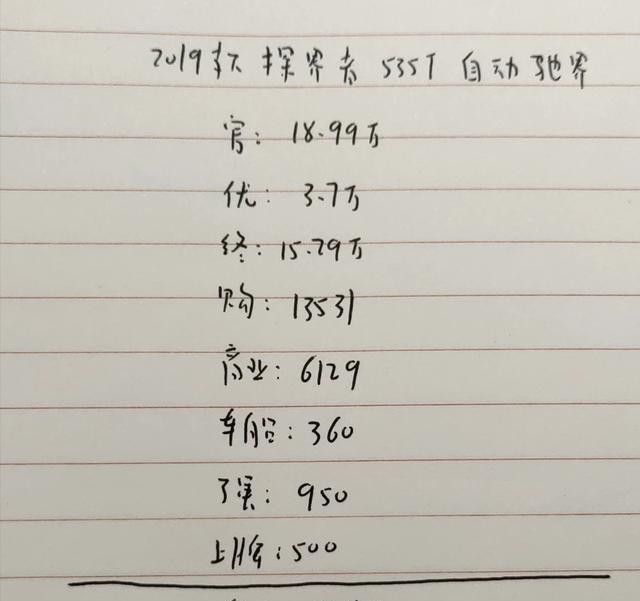 2019款 探界者 535T 自动驰界
官: 18.99万
优: 3.7万
终: 15.29万
购: 13531
商业: 6129
车船: 360
交强: 950
上牌: 500